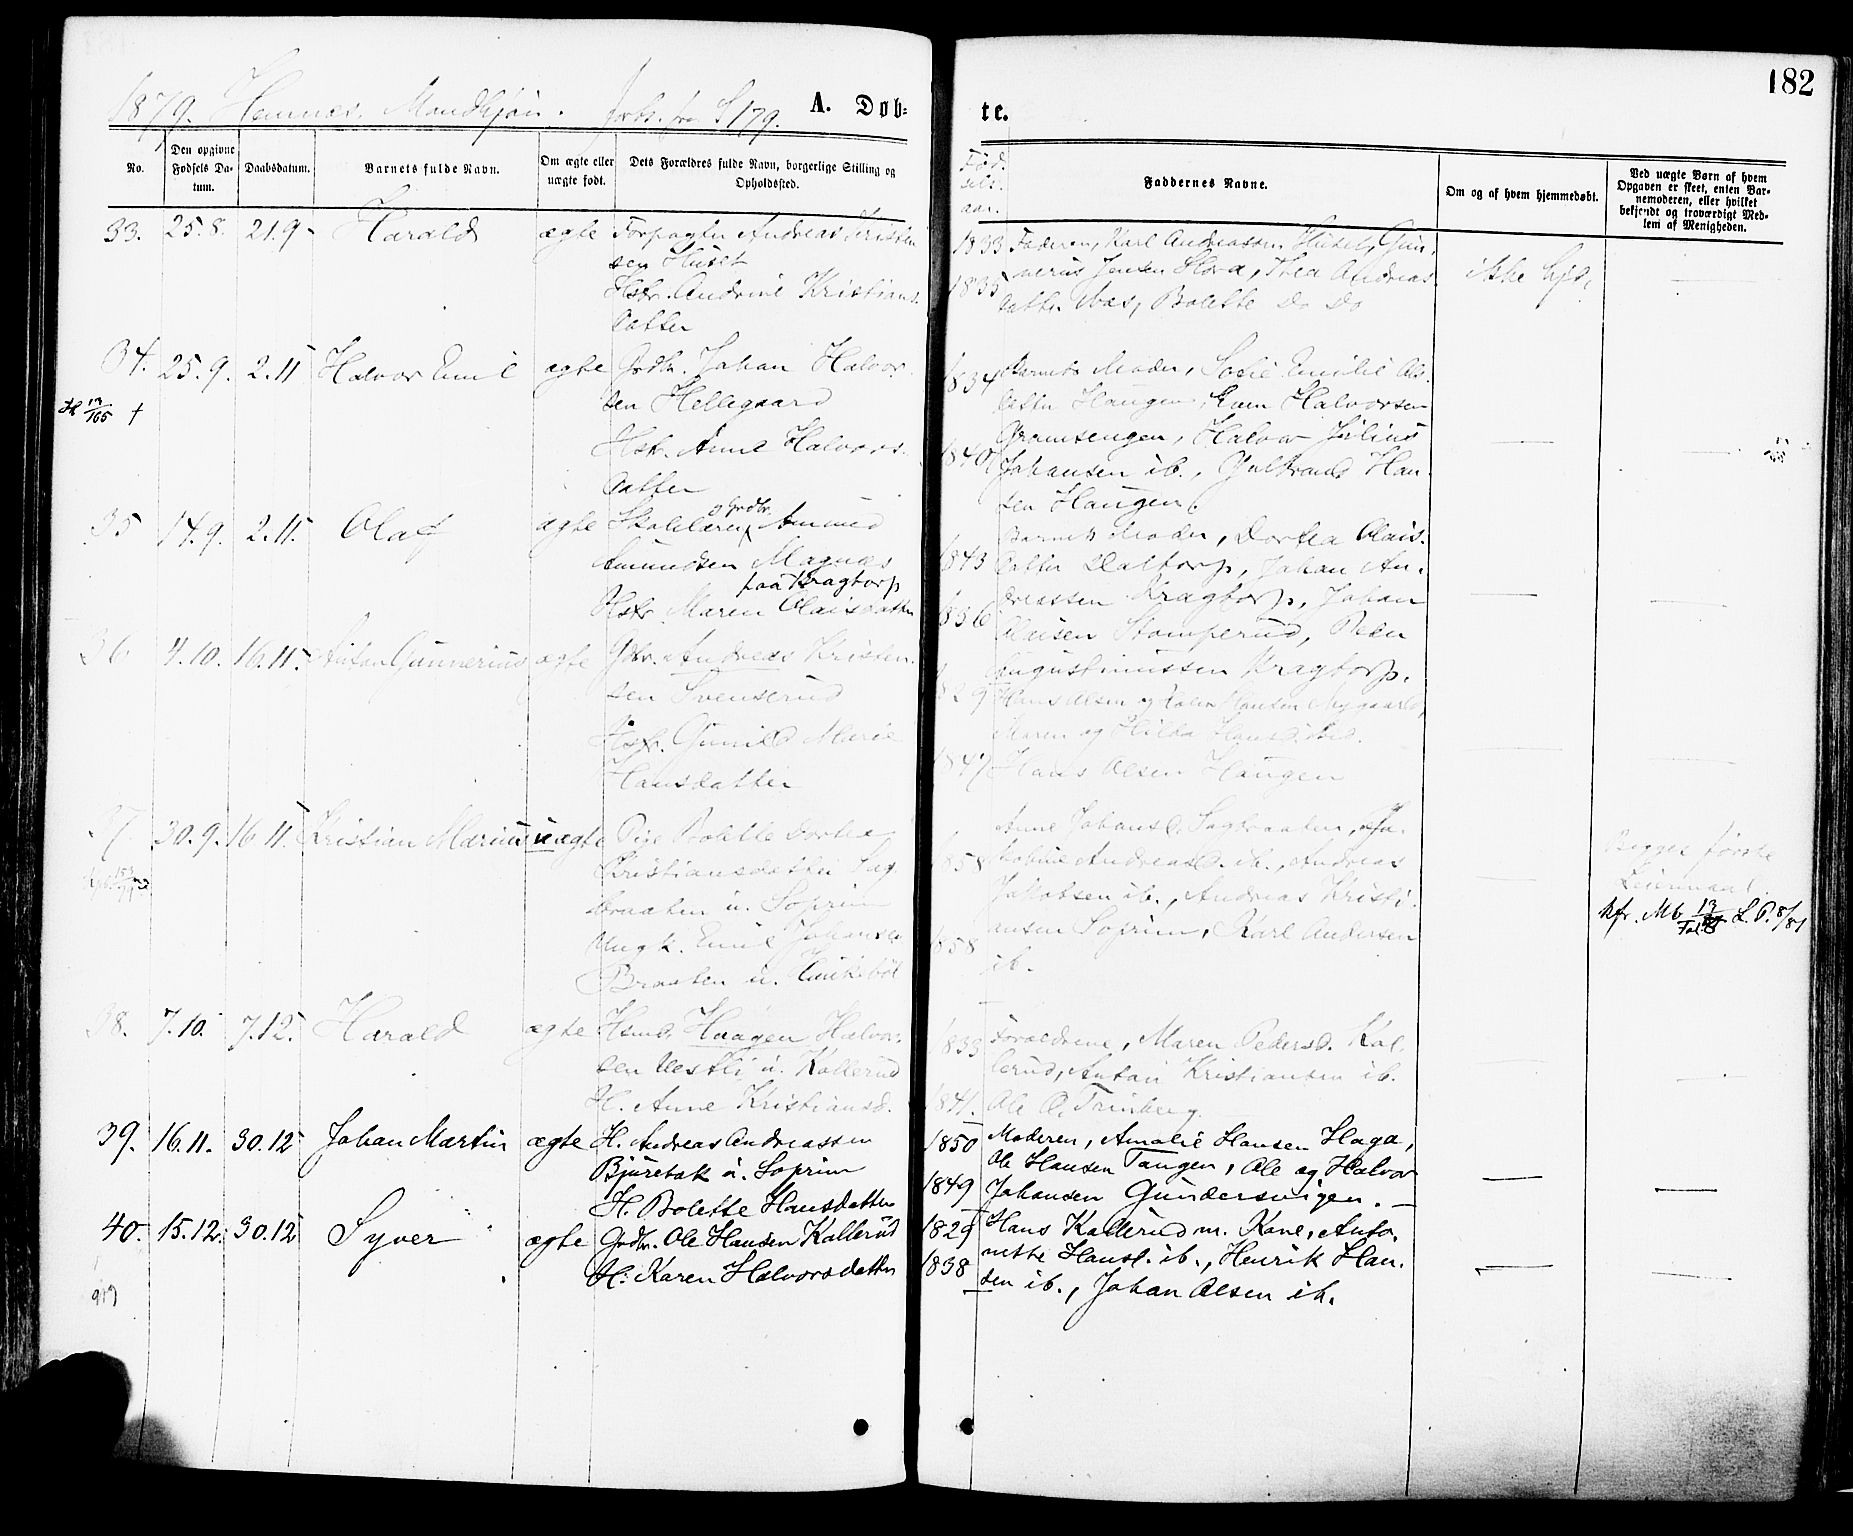 182
1879. Hemnes. Mandkjøn. forts. fra S 179. A. Døb-
te.
No.
Den opgivne Fødsels Da-
tum.
Daabsdatum.
Barnets fulde Navn.
Om ægte eller
uægte født.
Dets Forældres fulde Navn, borgerlige Stilling og
Opholdssted.
Fød.
sels.
aar.
Faddernes Navne.
Om og af hvem hjemmedøbt.
Ved uægte Børn af hvem
Opgaven er skeet, enten Bar-
nemoderen, eller hvilket
bekjendt og troværdigt Med-
lem af Menigheden.
33. 25.8. 21.9. Harald ægte Forpagter Andreas Kristen
sen Huset
Hstr. Andrine Kristians
datter
1833 Faderen, Karl Andreasen Huset, Gun
1835 nerius Jensen Hora, Thea Andreas
datter Næs, Bolette Do Do
ikke hjd.
34. 25.9. 2.11 Halvor Emil ægte Grdbr. Johan Halvor
sen Hellegaard
Hstr. Anne Halvors
datter
†
1834 Barnets Moder, Sofie Emilie Ols
datter Haugen, Even Halvorsen
Gramsengen, Halvor Julius
1840 Johansen ib., Gulbrand Han
sen Haugen.
35 14.9. 2.11. Olaf ægte Skolelærer og Grdbr. Amund
Amundsen Magnæs
paa Kragtorp
Hstr. Maren Olaisdatter
1843 Barnets Moder, Dortea Olais.
datter Daltorp, Johan An.
dreassen Kragtorp, Johan
1836 Olsen Stomperud, Peder
Augustinussen Kragtorp.
36 4.10. 16.11. Anton Gunnerius ægte Gbr. Andreas Kristen.
sen Svenserud
Hstr. Gunild Marie
Hansdatter
1829 Hans Olsen og Karen Hansen Nygaard,
Maren og Hilda Hansd. ibid.
1847 Hans Olsen Haugen
37 30.9. 16.11. Kristian Marius uægte Pige Bolette Dortea
Kristiansdatter Sag
braaten u. Soprim
Ungk. Emil Johansen
Braaten u.
1858 Anne Johansd. Sagbraaten, Ja.
kobine Andreasd. ib., Andreas
Jakobsen ib., Andreas Kristi.
1858 ansen Soprim, Karl Andersen
ib.
Begges første
Leiermaal.
kfr. Mb 13 L. P. 8/81
38. 7.10. 7.12. Harald ægte Hsmd. Haagen Halvor.
sen Vestli u. Kollerud
H. Anne Kristiansd.
1833 Forældrene, Maren Pedersd. Kol.
lerud, Anton Kristiansen ib.
1841. Ole O. Trinberg.
39. 16.11. 30.12 Johan Martin ægte H. Andreas Andreassen
Bjuretak u. Soprim
H. Bolette Hansdatter
1850 Moderen, Amalie Hansen Haga,
Ole Hansen Tangen, Ole og Halvor
1849 Johansen Gundersvigen.
40. 15.12. 30.12 Syver ægte Grdbr. Ole Hansen Kollerud
H: Karen Halvorsdatter
1829 Hans Kollerud m. Kone, Anto.
nette Hansd. ib., Henrik Han.
1838 sen ib., Johan Olsen ib.